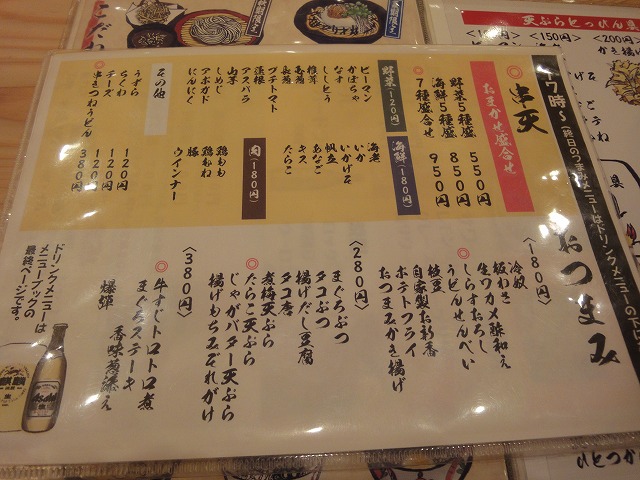 17時～(終日のつまみメニューはドリンクメニューの下に
◎串天
おまかせ盛合せ
野菜5種盛 550円
海鮮5種盛 850円
7種盛合せ 950円
野菜(120円)
ピーマン
かぼちゃ
なす
ししとう
椎茸
玉葱
長葱
プチトマト
蓮根
アスパラ
山芋
しめじ
アボガド
にんにく
海鮮(180円)
海老
いか
いかげそ
帆立
あなご
キス
たらこ
肉(180円)
鶏もも
鶏むね
豚
ウインナー
その他
うずら 120円
ちくわ 120円
チーズ 120円
◎串きつねうどん 380円
おつまみ
〈180円〉
冷奴
板わさ
生ワカメ酢和え
しらすおろし
◎うどんせんべい
枝豆
自家製お新香
ポテトフライ
おつまみかき揚げ
〈280円〉
まぐろぶつ
タコぶつ
揚げだし豆腐
タコ唐
煮梅天ぷら
◎たらこ天ぷら
じゃがバター天ぷら
揚げもちみぞれがけ
〈380円〉
◎牛すじトロトロ煮
まぐろステーキ
香味葱添え
爆弾
ドリンクメニューは
メニューブックの
最終ページです。
Asahi
天ぷらとっぴん
〈150円〉
〈200円〉
かき揚げ